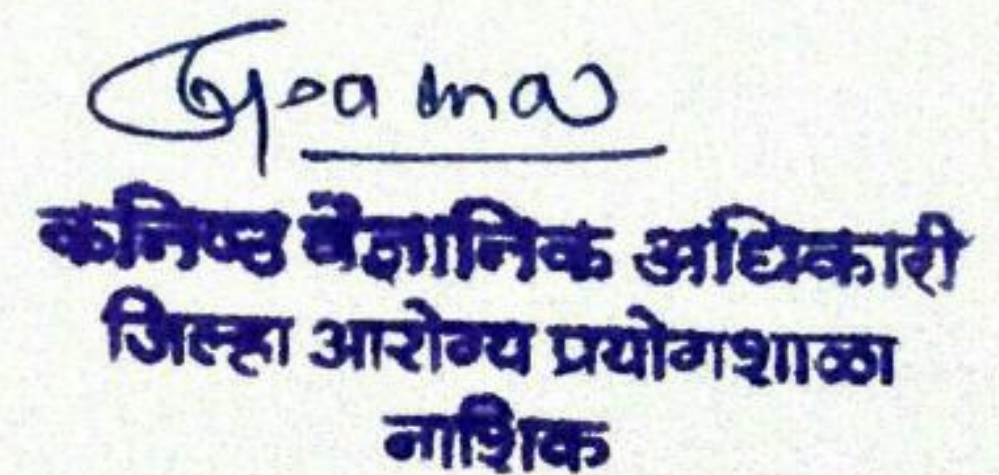 कनिष्ठ वैज्ञानिक अधिकारी
जिल्हा आरोग्य प्रयोगशाळा
नाशिक